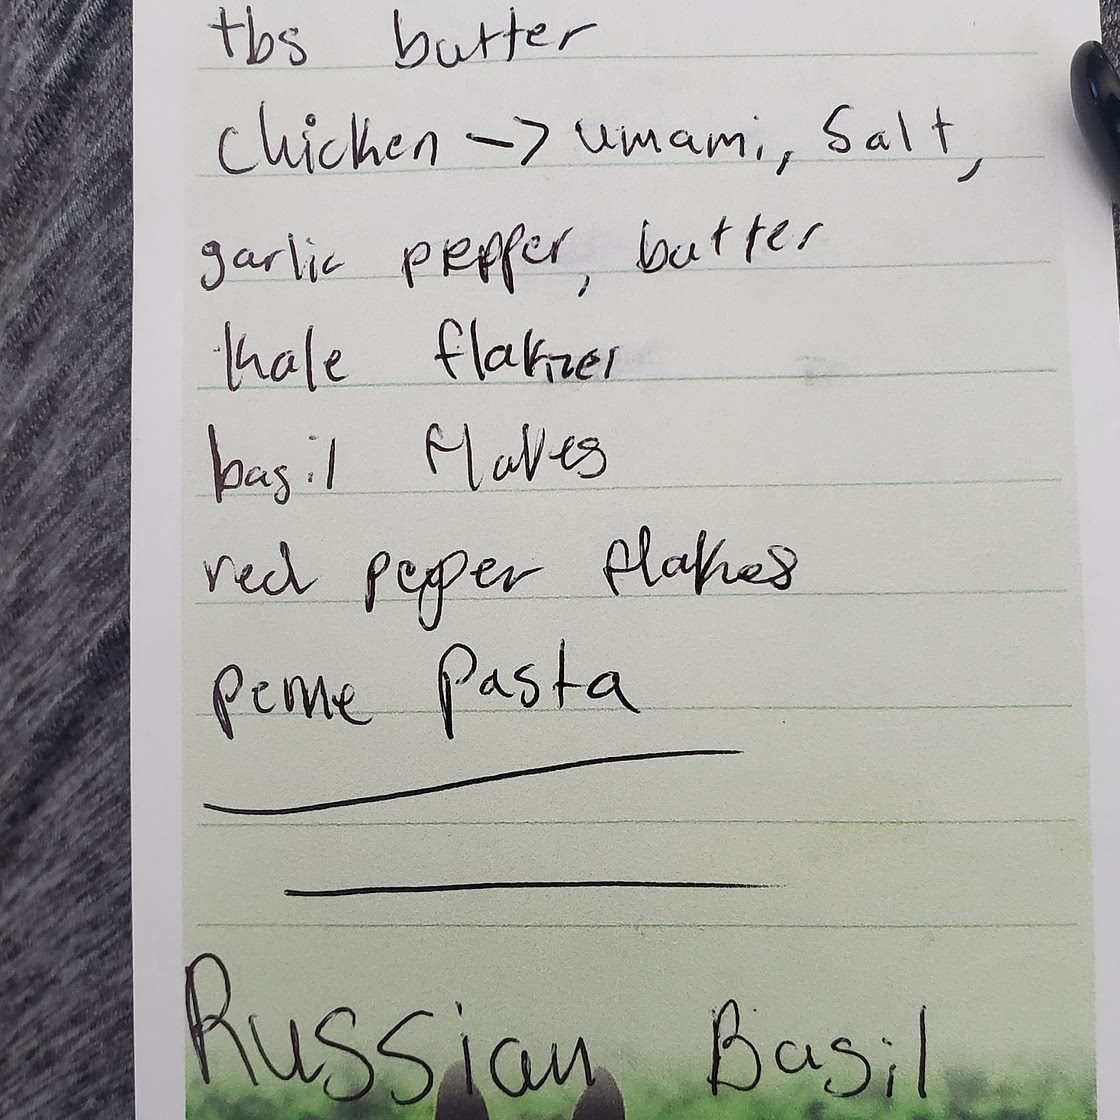 tbs butter
Chicken -> umami, Salt,
garlic pepper, butter
kale flakes
basil flakes
red pepper flakes
penne pasta
Russian Basil